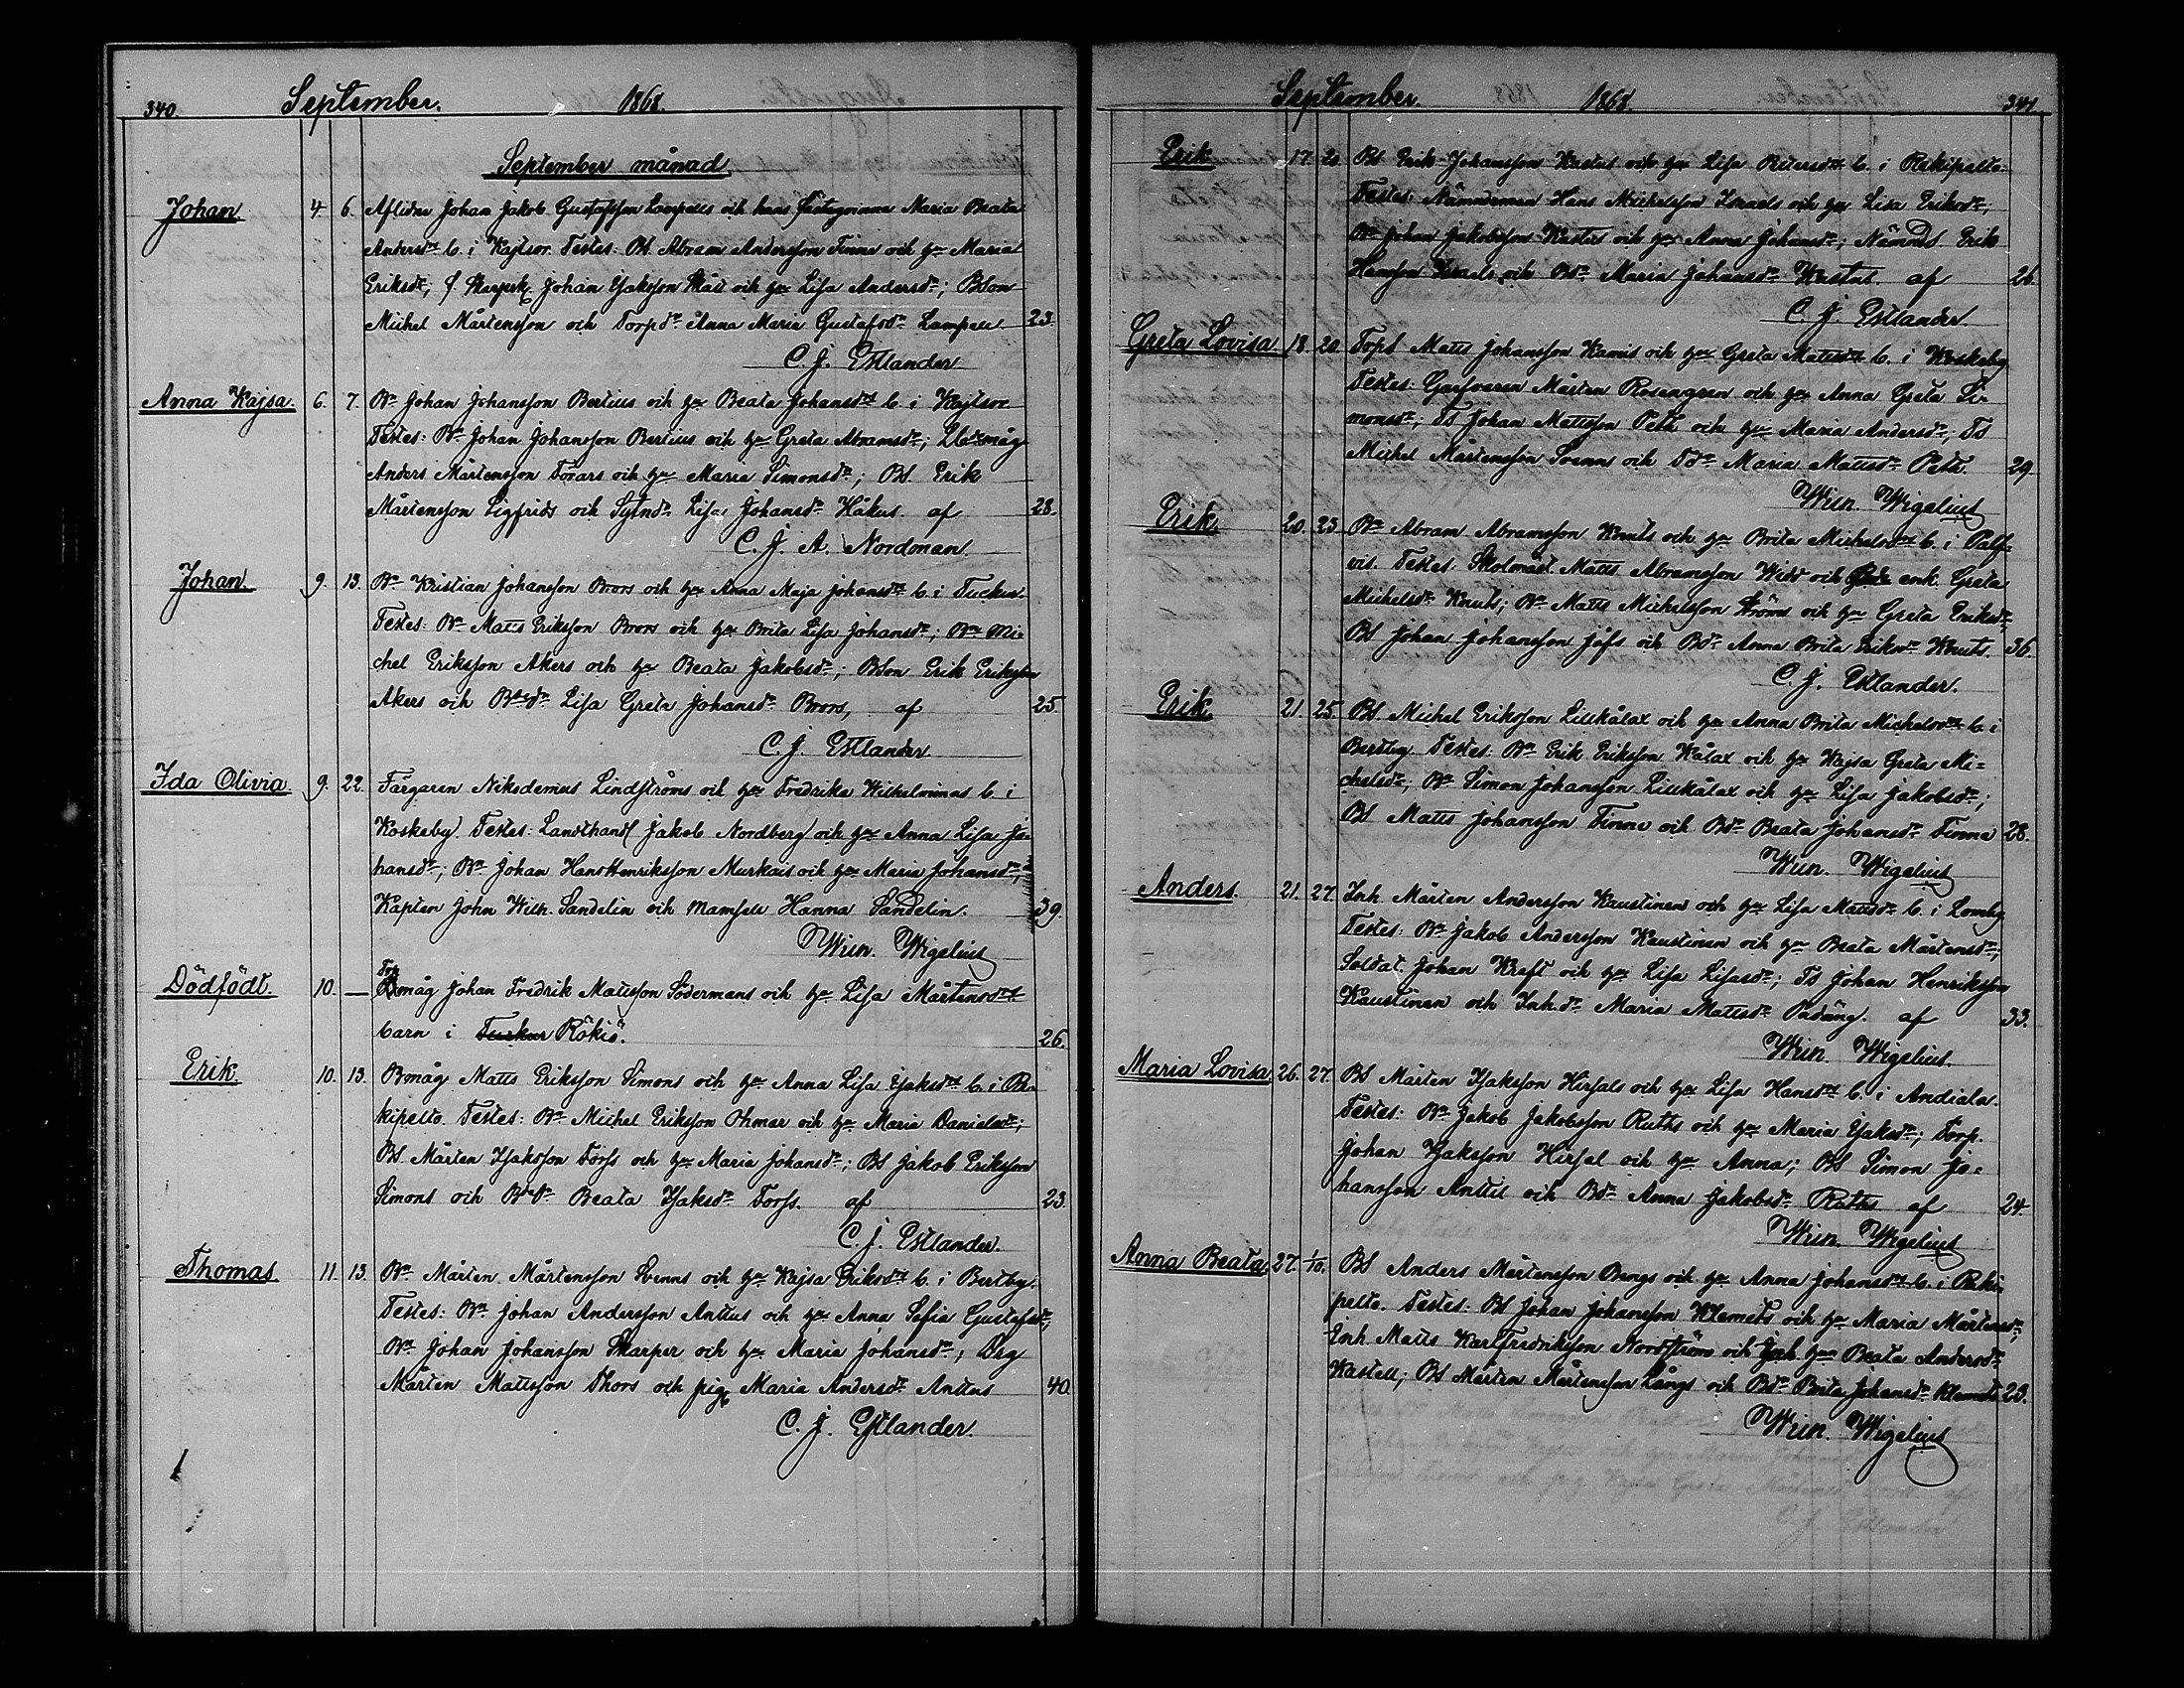 340. September. 1868.
September månad
Johan. 4. 6. Aflidne Johan Jakob Gustafsson Lampells och hans Fästeqvinna Maria Beata
Andersdrs b. i Kaitsor. Testes: Bs. Abram Andersson Finne och hu Maria
Eriksdr; f Skarpsk. Johan Isaksson Skatt och hu Lisa Andersdr; Bson
Michel Mårtensson och Torpdr Anna Maria Gustafsdr Lampell. 23.
C. J. Estlander
Anna Kajsa. 6. 7. Bn Johan Johansson Bertills och hu Beata Johansdrs b. i Kaitsor
Testes: Bn Johan Johansson Bertills och hu Greta Abramsdr; måg
Anders Mårtensson Torars och hu Maria Simonsdr; Bs. Erik
Mårtensson Sigfrids och Sytndr Lisa Johansdr Håkus. af 28.
C. J. A. Nordman.
Johan. 9. 13. Bn Kristian Johansson Brors och hu Anna Maja Johansdrs b. i Tuckur
Testes: Bn Matts Eriksson Brors och hu Brita Lisa Johansdr; Bn Mi-
chel Eriksson Akers och hu Beata Jakobsdr; Bson Erik Eriksson
Akers och Bdr Lisa Greta Johansdr Brors, af 25.
C. J. Estlander
Ida Olivia. 9. 22. Färgaren Nikodemus Lindströms och hu Fredrika Wilhelminas b. i
Koskeby. Testes: Landthandl Jakob Nordberg och hu Anna Lisa Jo-
hansdr; Bn Johan HansHenriksson Murkais och hu Maria Johansdr;
Kapten John Wilh. Sandelin och Mamsell Hanna Sandelin. 39.
Win. Wigelius
Dödfödt. 10. — Torpmåg Johan Fredrik Mattsson Södermans och hu Lisa Mårtensdrs
barn i Tuckur Rökiö. 26.
Erik. 10. 13. Bmåg Matts Eriksson Simons och hu Anna Lisa Isaksdrs b. i Re-
kipelto. Testes: Bn Michel Eriksson Ohmar och hu Maria Danielsdr;
Bs Mårten Isaksson Torss och hu Maria Johansdr; Bs Jakob Eriksson
Simons och Bdr Beata Isaksdr Torss. af 23.
C. J. Estlander.
Thomas. 11. 13. Bn Mårten Mårtensson Svenns och hu Kajsa Eriksdrs b. i Bertby.
Testes: Bn Johan Andersson Anttus och hu Anna Sofia Gustafsdr;
Bn Johan Johansson Skarper och hu Maria Johansdr; Drg
Mårten Mattsson Thors och pig. Maria Andersdr Anttus 40.
C. J. Estlander.
September. 1868. 341.
Erik 17. 20. Bs Erik Johansson Kastus och hu Lisa Petersdrs b. i Rekipelto.
Testes: Nämndeman Hans Michelsson Israels och hu Lisa Eriksdr;
Bn Johan Jakobsson Kastus och hu Anna Johansdr; Nämnds Erik
Hansson Israels och Bdr Maria Johansdr Kastus. af 26.
C. J. Estlander.
Greta Lovisa. 18. 20. Tops Matts Johansson Kamis och hu Greta Mattsdrs b. i Koskeby
Testes: Garfvaren Mårten Rosengren och hu Anna Greta Si-
monsdr; Ts Johan Mattsson Peth och hu Maria Andersdr; Ts
Michel Mårtensson Svenns och Tdr Maria Mattsdr Peth. 29.
Win. Wigelius
Erik. 20. 23. Bn Abram Abramsson Knuts och hu Brita Michelsdrs b. i Palf-
vis. Testes: Skolmäst. Matts Abramsson Widd och enk. Greta
Michelsdr Knuts; Bn Matts Michelsson Ströms och hu Greta Eriksdr;
Bs Johan Johansson Jåfs och Bdr Anna Brita Eriksdr Knuts. 36.
C. J. Estlander.
Erik. 21. 25. Bs. Michel Eriksson Lillkålax och hu Anna Brita Michelsdrs b. i
Bertby. Testes: Bn Erik Eriksson Kålax och hu Kajsa Greta Mi-
chelsdr; Bn Simon Johansson Lillkålax och hu Lisa Jakobsdr;
Bs Matts Johansson Finne och Bdr Beata Johansdr Finne 28.
Win. Wigelius
Anders. 21. 27. Inh. Mårten Andersson Kaustinens och hu Lisa Mattsdr b. i Lomby
Testes: Bn Jakob Andersson Kaustinen och hu Beata Mårtensdr;
Soldat. Johan Kraft och hu Lisa Lisasdr; Ts Johan Henriksson
Kaustinen och Inh.dr Maria Mattsdr Padäng. af 33.
Win Wigelius.
Maria Lovisa 26. 27. Bs Mårten Isaksson Hirsals och hu Lisa Hansdrs b. i Andiala.
Testes: Bn Jakob Jakobsson Ruths och hu Maria Isaksdr; Torp.
Johan Isaksson Hirsal och hu Anna; Bs Simon Jo-
hansson Anttil och Bdr Anna Jakobsdr Ruths af 24.
Win. Wigelius
Anna Beata. 27. 1/10. Bs Anders Mårtensson Bengs och hu Anna Johansdrs b. i Reki-
pelto. Testes: Bs Johan Johansson Klemets och hu Maria Mårtensdr;
Inh. Matts Karlfredriksson Nordström och hu Beata Andersdr
Kastell; Bs Mårten Mårtensson Långs och Bdr Brita Johansdr Klemets 23.
Win. Wigelius